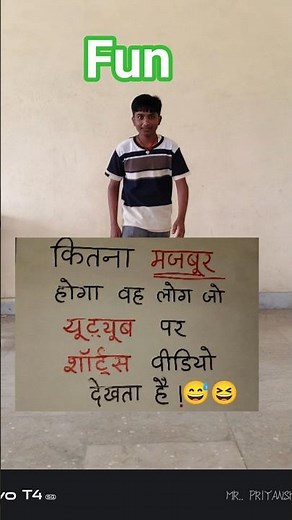 Fun
कितना मजबूर
होगा वह लोग जो
यूट्यूब पर
शॉर्ट्स वीडियो
देखता है !😅😆
vo T4 5G
MR.. PRIYANSH